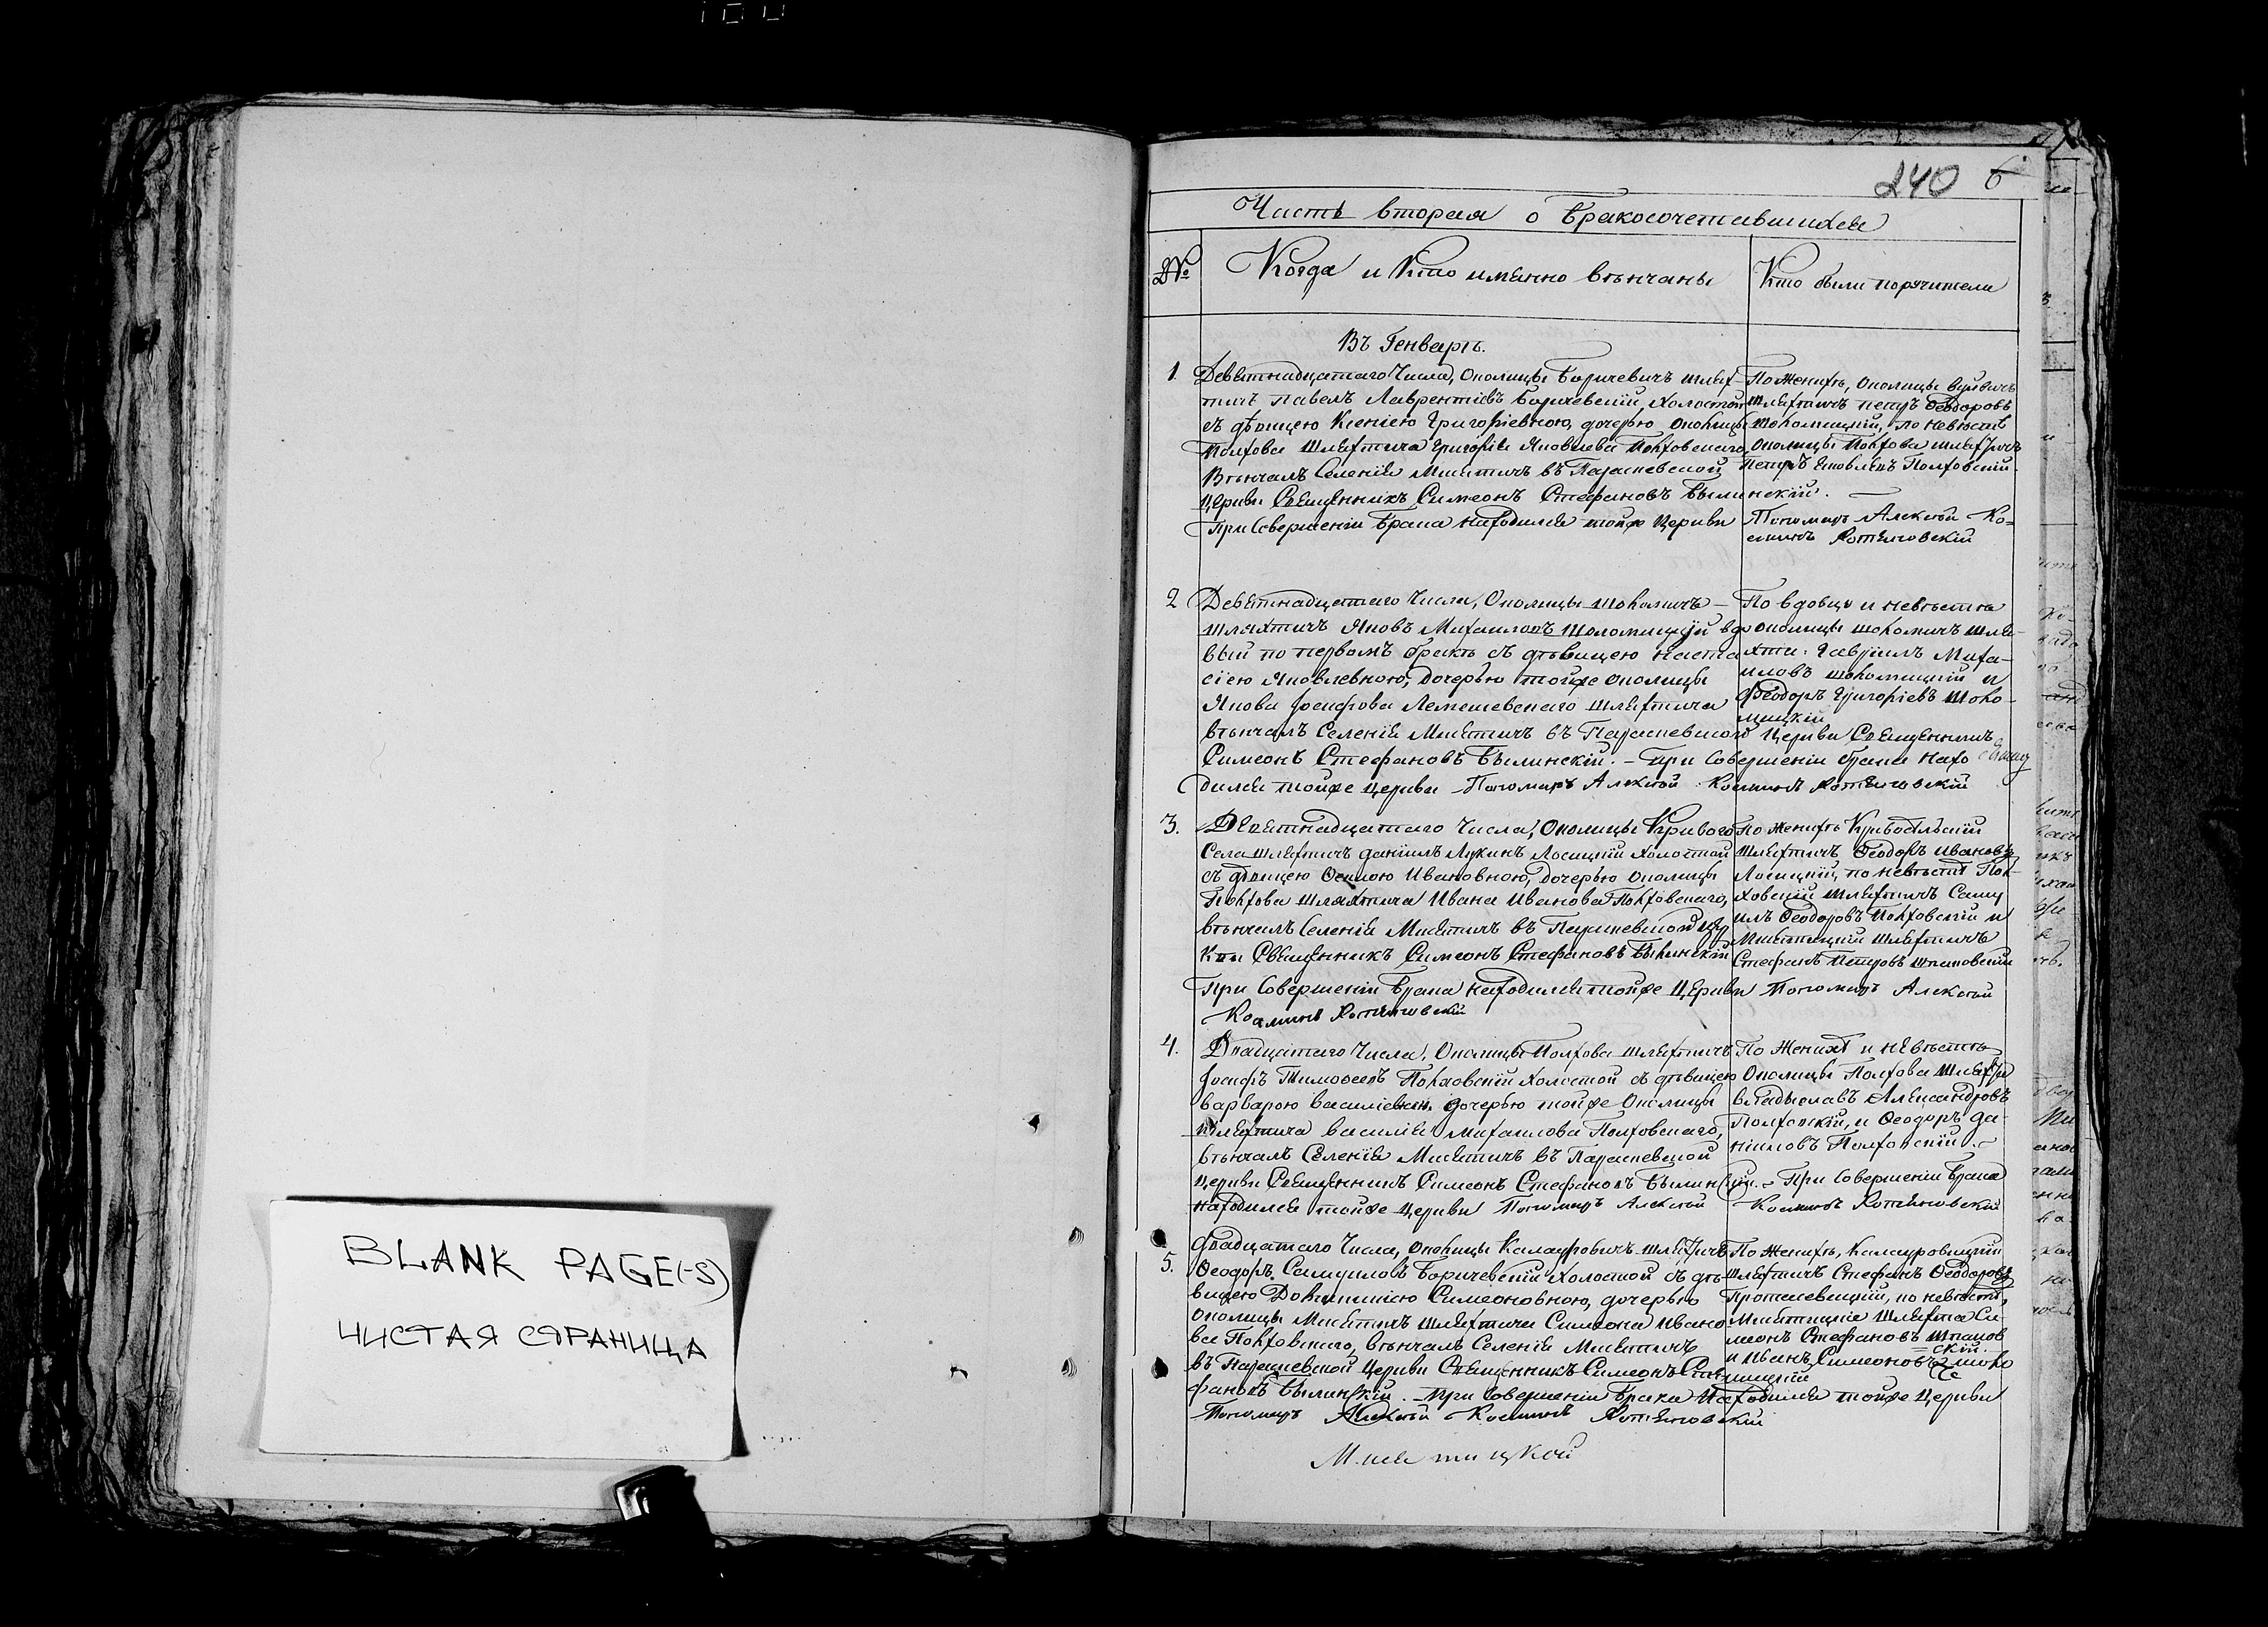 240 6
Часть вторая о бракосочетавшихся
№ Когда и Кто именно вѣнчаны Кто были поручители
Въ Генварѣ.
1. Девятнадцатаго Числа, Околицы Боричевичъ шлях-
тичъ Павелъ Лаврентіевъ Боричевскій, Холостой
съ дѣвицею Ксеніею Григоріевною, дочерью Околицы
Полхова Шляхтича Григорія Яковлева Полховскаго
Вѣнчалъ Селенія Мисятичъ въ Параскевской
Церкви Священникъ Симеонъ Стефановъ Былинскій.
При Совершеніи Брака находился тойже Церкви Пономарь Алексѣй Ко-
сминъ Хотяновскій
По Женихѣ, Околицы
Шляхтичъ Петръ Ѳеодоровъ
Шоломицкій, по невѣстѣ
Околицы Полхова шляхтичъ
Петръ Яковлевъ Полховскій.
2 Девятнадцатаго Числа, Околицы Шоломичъ
шляхтичъ Яковъ Михаиловъ Шоломицкій вдо
вый по первомъ бракѣ съ дѣвицею Наста
сіею Яковлевною, Дочерью тойже Околицы
Якова Іосифова Лемешевскаго шляхтича
вѣнчалъ Селенія Мисятичъ въ Параскевской Церкви Священникъ
Симеонъ Стефановъ Былинскій. – При Совершеніи брака нахо
дился тойже Церкви Пономарь Алексѣй Косминъ Хотяновскій
По вдовцу и невѣстѣ
Околицы Шоломичъ шля-
хти: Гавріилъ Миха-
иловъ Шоломицкій и
Ѳеодоръ Григоріевъ Шоло-
мицкій
3. Девятнадцатаго Числа, Околицы Криваго
Села шляхтичъ Даніилъ Лукинъ Лосицкій Холостой
съ дѣвицею Ѳеклою Ивановною, Дочерью Околицы
Полхова шляхтича Ивана Иванова Полховскаго,
вѣнчалъ Селенія Мисятичъ въ Параскевской Цер
кви Священникъ Симеонъ Стефановъ Былинскій
При Совершеніи Брака находился тойже Церкви Пономарь Алексѣй
Косминъ Хотяновскій
По Женихѣ Кривосельскій
шляхтичъ Ѳеодоръ Ивановъ
Лосицкій, по невѣстѣ Пол-
ховскій шляхтичъ Саму
илъ Ѳеодоровъ Полховскій и
Мисятицкій шляхтичъ
Стефанъ Петровъ Шпаковскій
4. Двадцатаго Числа, Околицы Полхова шляхтичъ
Іосифъ Тимоѳеевъ Полховскій Холостой съ дѣвицею
Варварою Василіевою дочерью тойже Околицы
шляхтича Василія Михаилова Полховскаго,
вѣнчалъ Селенія Мисятичъ въ Параскевской
Церкви Священникъ Симеонъ Стефановъ Былинскій. – При Совершеніи Брака
находился тойже Церкви Пономарь Алексѣй Косминъ Хотяновскій
По Женихѣ и невѣстѣ
Околицы Полхова Шляхти
Владыславъ Александровъ
Полховскій, и Ѳеодоръ Да-
ніиловъ Полховскій.
5. Двадцатаго Числа, Околицы Калауровичъ шляхтичъ
Ѳеодоръ Самуиловъ Боричевскій Холостой съ дѣ-
вицею Домникіею Симеоновною, дочерью
Околицы Мисятичъ шляхтича Симеона Ивано
ва Полховскаго, вѣнчалъ Селенія Мисятичъ
въ Параскевской Церкви Священникъ Симеонъ Сте
фановъ Былинскій. – При Совершеніи Брака Находился тойже Церкви
Пономарь Алексѣй Косминъ Хотяновскій
По Женихѣ, Калауровицкій
шляхтичъ Стефанъ Ѳеодоровъ
Протасевицкій, по невѣстѣ,
Мисятицкіе Шляхта Си-
меонъ Стефановъ Шпаков
скій
и Иванъ Симеоновъ Шоло
мицкій
Мисятицкой
BLANK PAGE(-S)
ЧИСТАЯ СТРАНИЦА